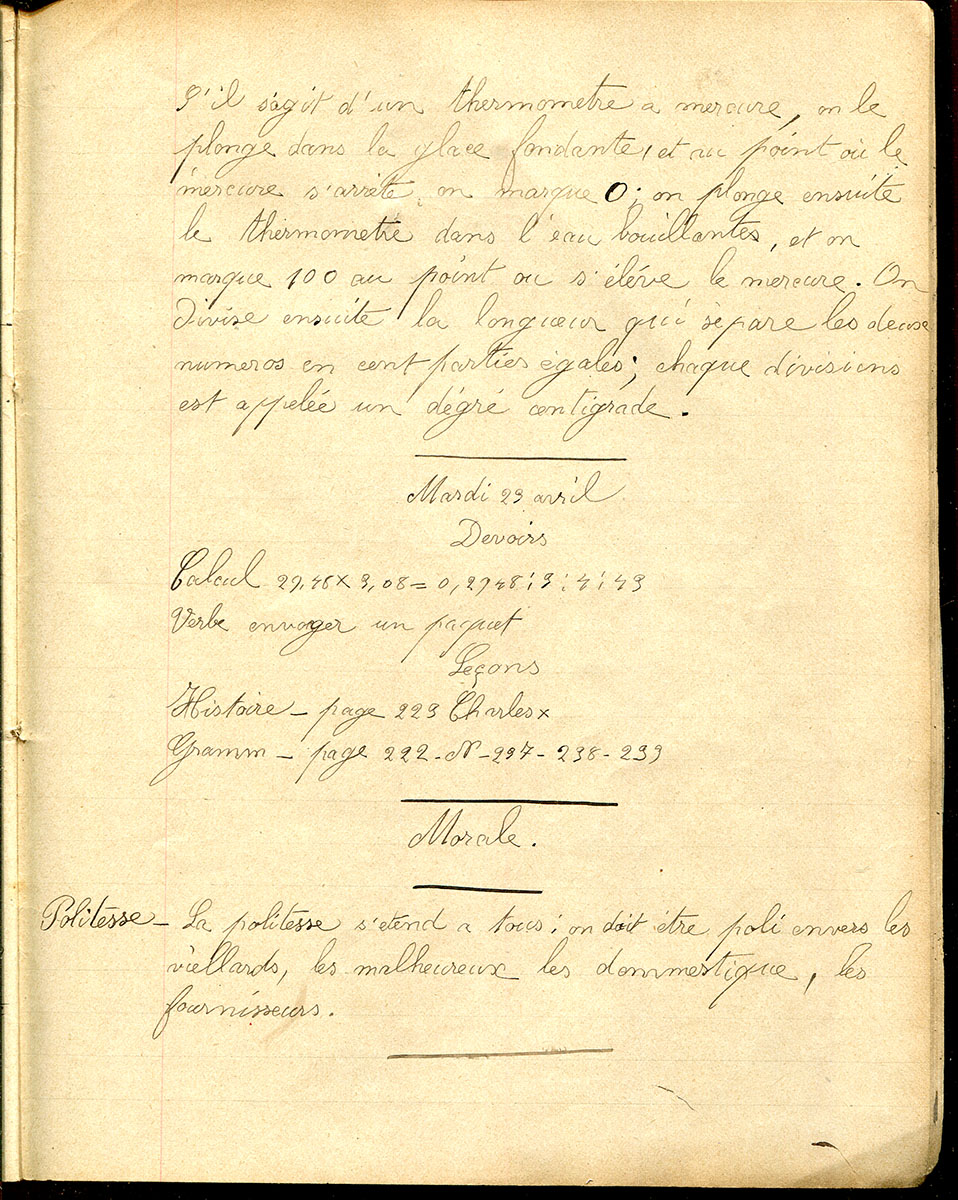 S'il s'agit d'un thermometre a mercure, on le
plonge dans la glace fondante, et au point où le
mercure s'arrête, on marque 0; on plonge ensuite
le thermometre dans l'eau bouillantes, et on
marque 100 au point ou s'élève le mercure. On
divise ensuite la longueur qui sépare les deux
numeros en cent parties égales; chaque divisions
est appelée un dégré centigrade.
Mardi 29 avril
Devoirs
Calcul 29,48 x 3,08 = 0,2948 : 3 : 4 : 43
Verbe envoyer un paquet
Leçons
Histoire - page 223 Charles x
Gramm - page 222 - N - 237 - 238 - 239
Morale.
Politesse - La politesse s'étend a tous; on doit être poli envers les
viellards, les malheureux les dommestique, les
fournisseurs.